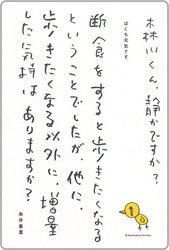 森川くん、静かですか?
ぼくも元気です。
断食をすると歩きたくなる
ということでしたが、他に、
歩きたくなる以外に、増量
した気持はありますか?
糸井重里
1